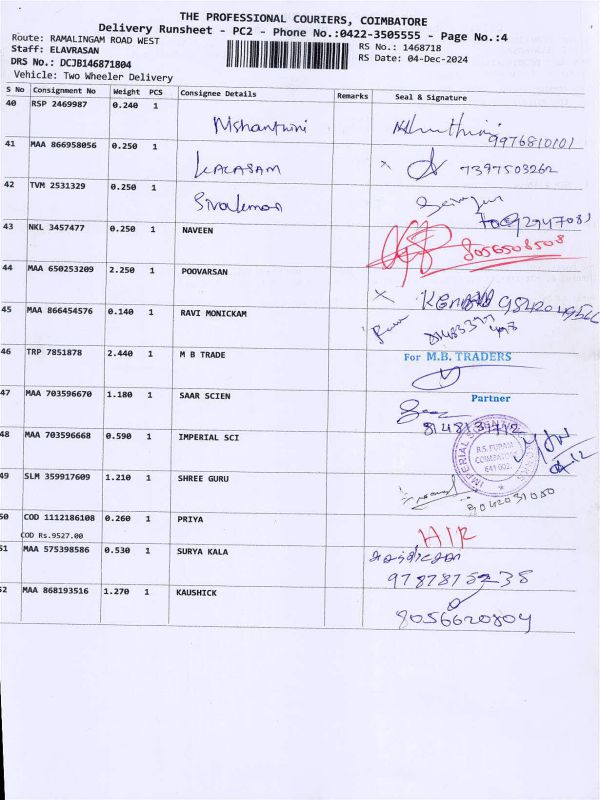 THE PROFESSIONAL COURIERS, COIMBATORE
Delivery Runsheet - PC2 - Phone No.:0422-3505555 - Page No.:4
Route: RAMALINGAM ROAD WEST
Staff: ELAVRASAN
DRS No.: DCJB146871804
Vehicle: Two Wheeler Delivery
RS No.: 1468718
RS Date: 04-Dec-2024
S No Consignment No Weight PCS Consignee Details Remarks Seal & Signature
40 RSP 2469987 0.240 1 Nishanthini
9976810101
41 MAA 866958056 0.250 1 KALASAM 7397503262
42 TVM 2531329 0.250 1 Sivakumar
43 NKL 3457477 0.250 1 NAVEEN 8056508508
44 MAA 650253209 2.250 1 POOVARSAN
45 MAA 866454576 0.140 1 RAVI MONICKAM
46 TRP 7851878 2.440 1 M B TRADE For M.B. TRADERS
Partner
47 MAA 703596670 1.180 1 SAAR SCIEN
48 MAA 703596668 0.590 1 IMPERIAL SCI
R.S. PURAM
COIMBATORE
641 002.
49 SLM 359917609 1.210 1 SHREE GURU
9042031080
50 COD 1112186108 0.260 1 PRIYA HIR
COD Rs.9527.00
51 MAA 575398586 0.530 1 SURYA KALA
9787875238
52 MAA 868193516 1.270 1 KAUSHICK
8056620804